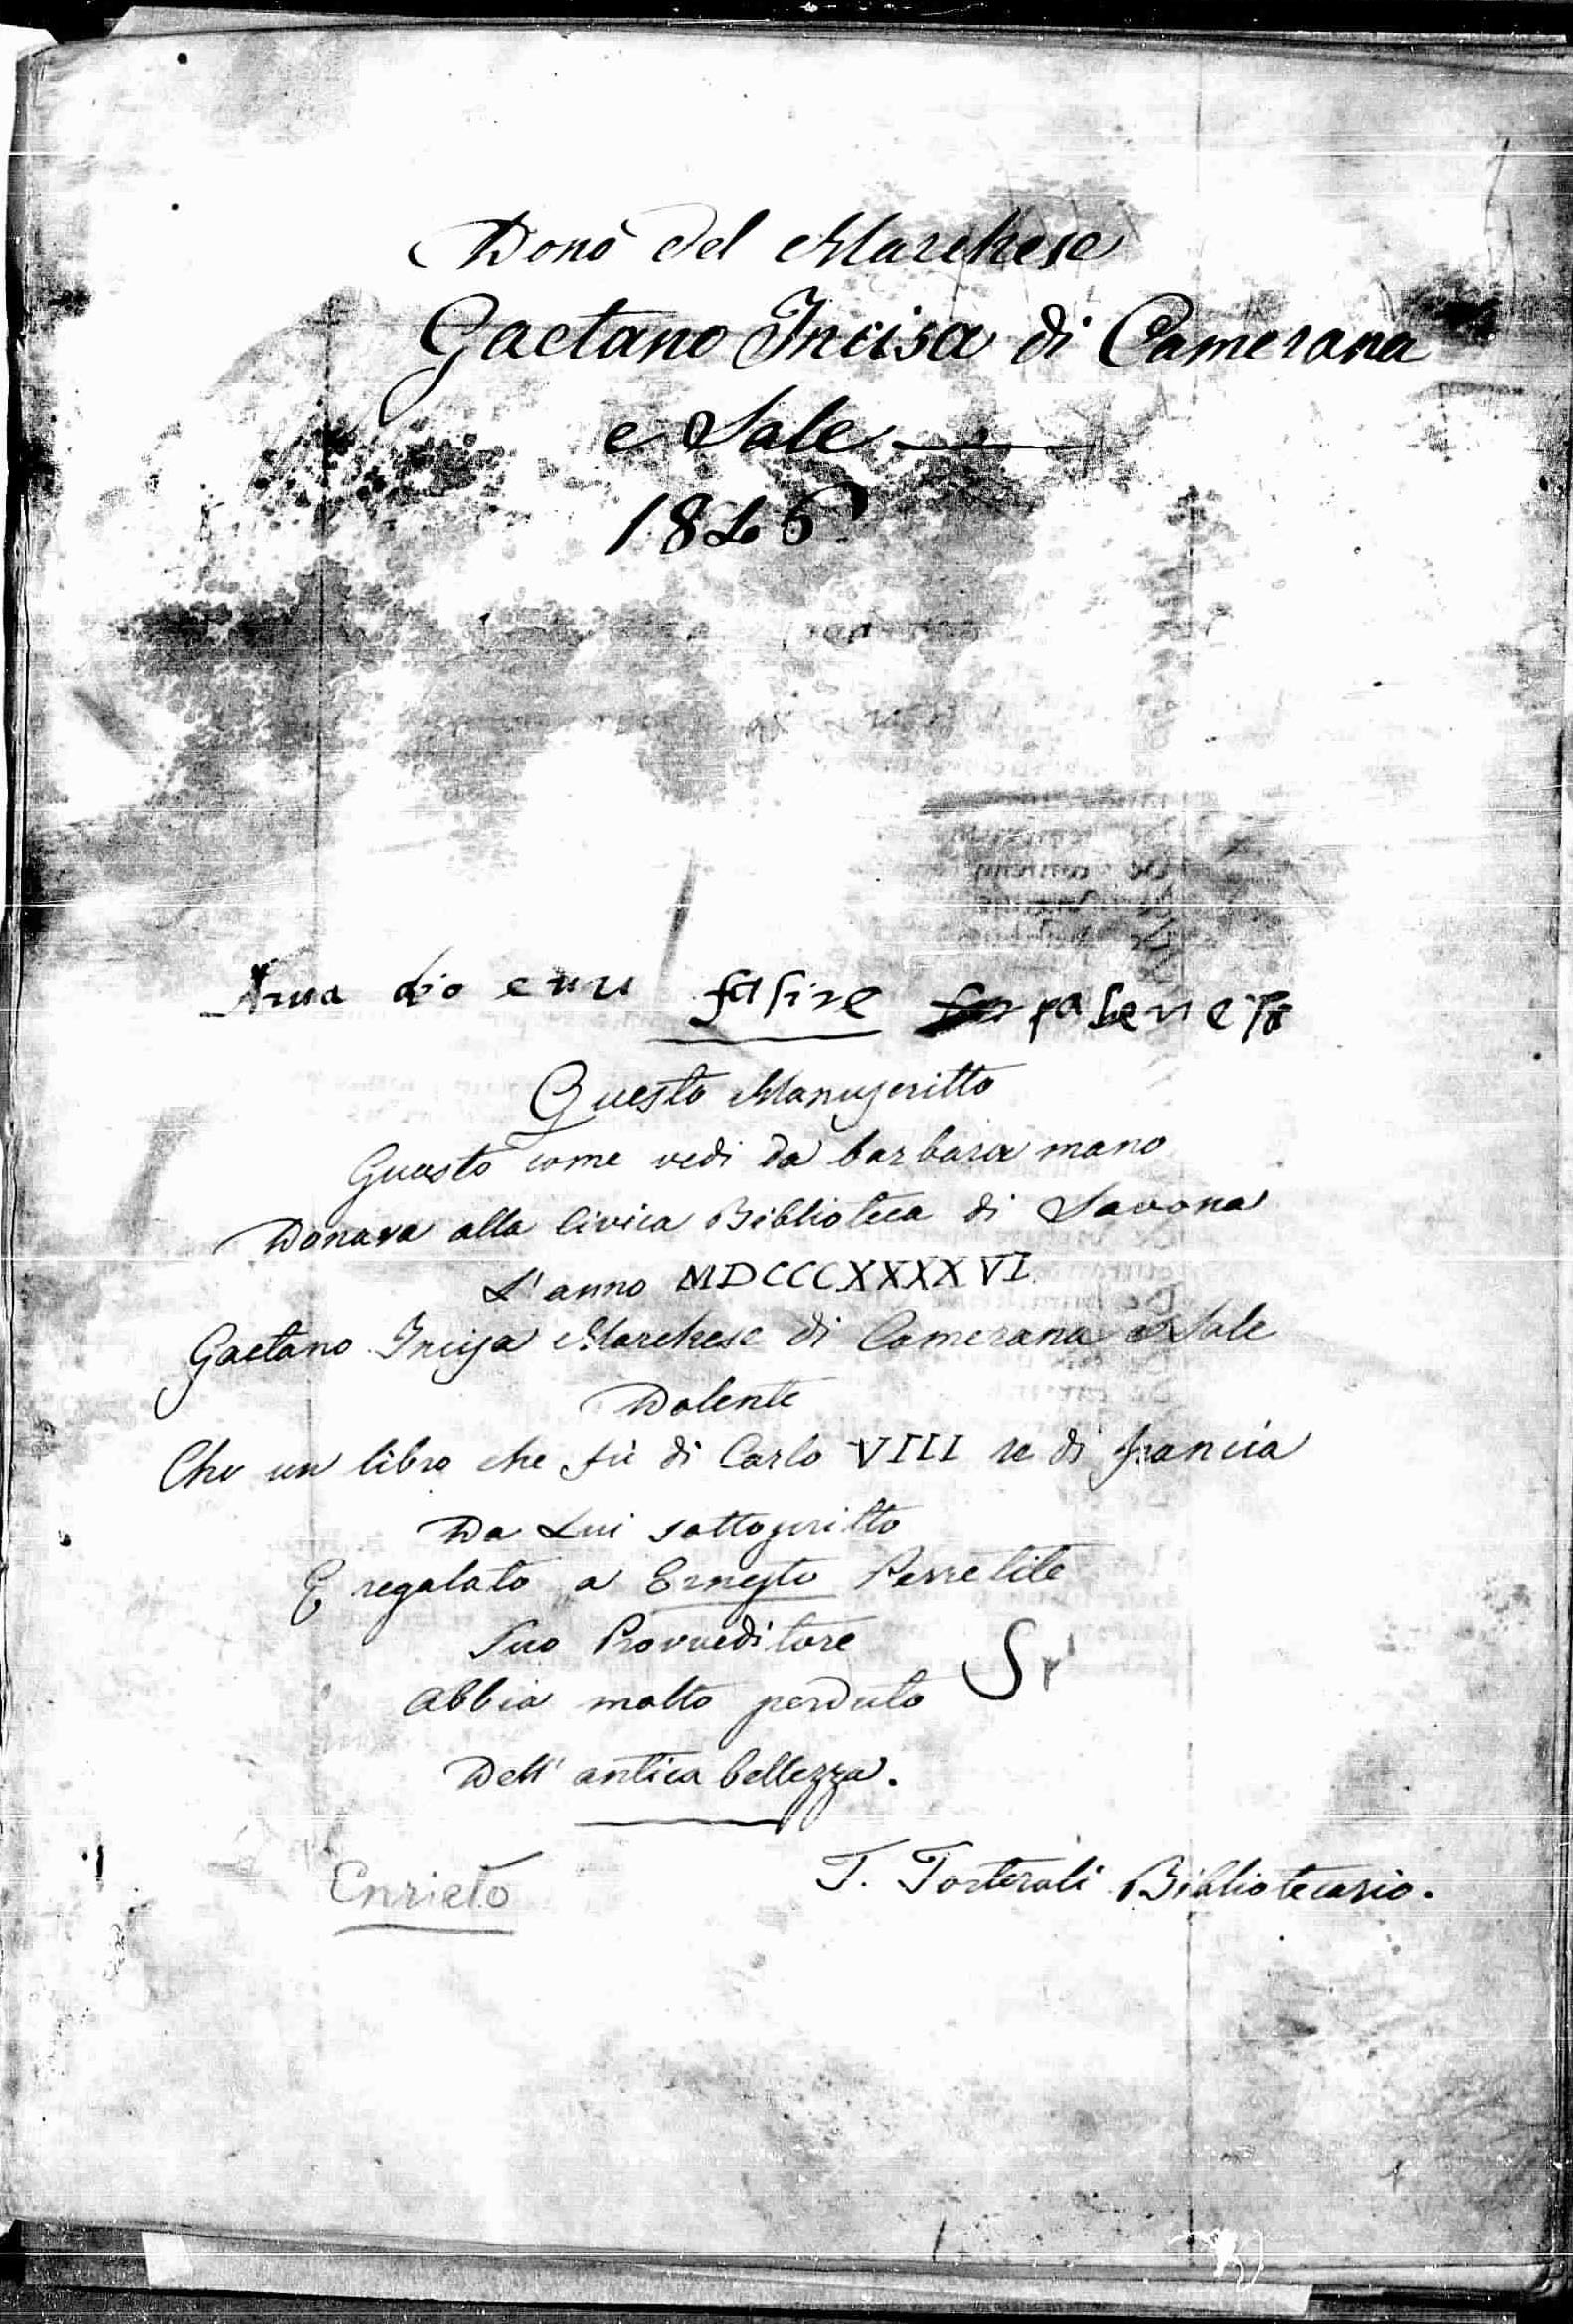 Dono del Marchese
Gaetano Incisa di Camerana
e Sale
1846
fasire
Questo Manuscritto
Guasto come vedi da barbara mano
Donava alla Civica Biblioteca di Savona
L'anno MDCCCXXXXVI
Gaetano Incisa Marchese di Camerana e Sale
Dolente
Che un libro che fù di Carlo VIII re di francia
Da Lui sottoscritto
E regalato a Ernesto
Suo Provveditore
Abbia molto perduto
Dell' antica bellezza.
T. Torteroli Bibliotecario.
Enrieto